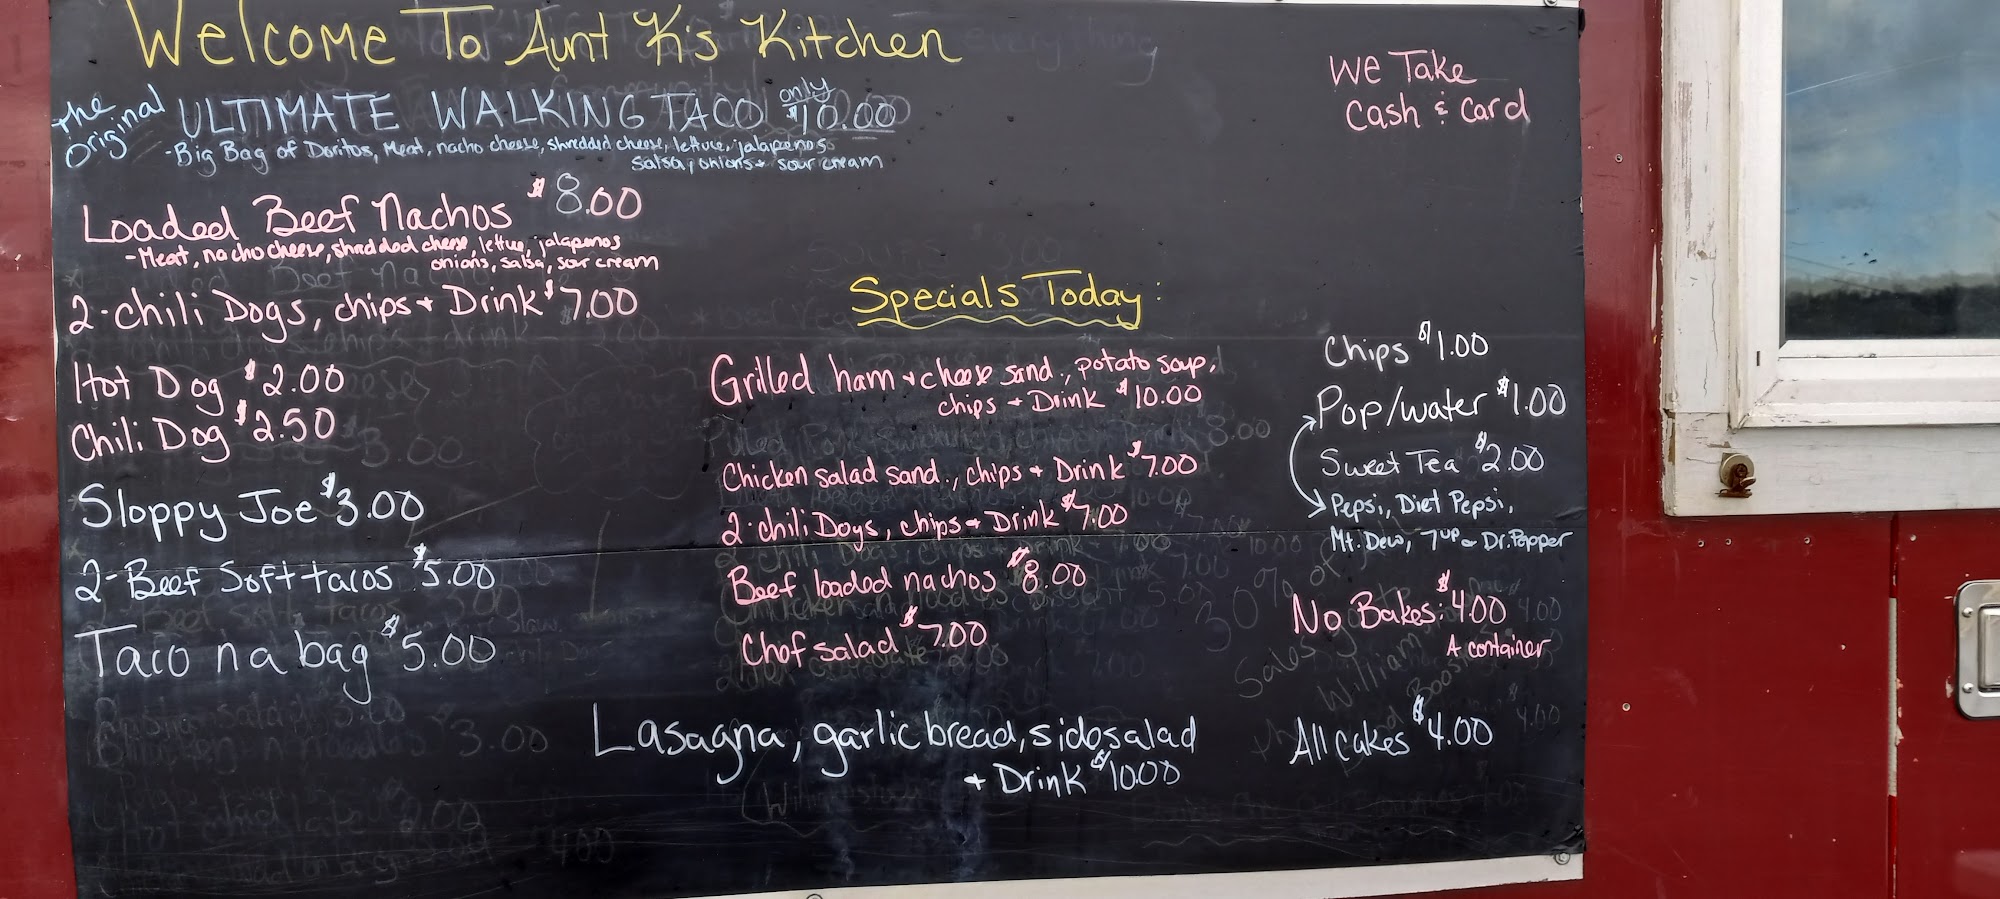 Welcome To Aunt K's Kitchen
We Take
Cash & Card
The Original
ULTIMATE WALKING TACO only $10.00
-Big Bag of Doritos, Meat, nacho cheese, shredded cheese, lettuce, jalapenos
salsa, onions + sour cream
Loaded Beef Nachos $8.00
-Meat, nacho cheese, shredded cheese, lettuce, jalapenos
onions, salsa, sour cream
2-chili Dogs, chips + Drink $7.00
Hot Dog $2.00
Chili Dog $2.50
Sloppy Joe $3.00
2-Beef Soft tacos $5.00
Taco n a bag $5.00
Specials Today:
Grilled ham + cheese sand., potato soup,
chips + Drink $10.00
Chicken salad sand., chips + Drink $7.00
2-chili Dogs, chips + Drink $7.00
Beef loaded nachos $8.00
Chef salad $7.00
Lasagna, garlic bread, side salad
+ Drink $10.00
Chips $1.00
Pop/water $1.00
Sweet Tea $2.00
Pepsi, Diet Pepsi,
Mt. Dew, 7up + Dr. Pepper
No Bakes: $4.00
A container
All cakes $4.00